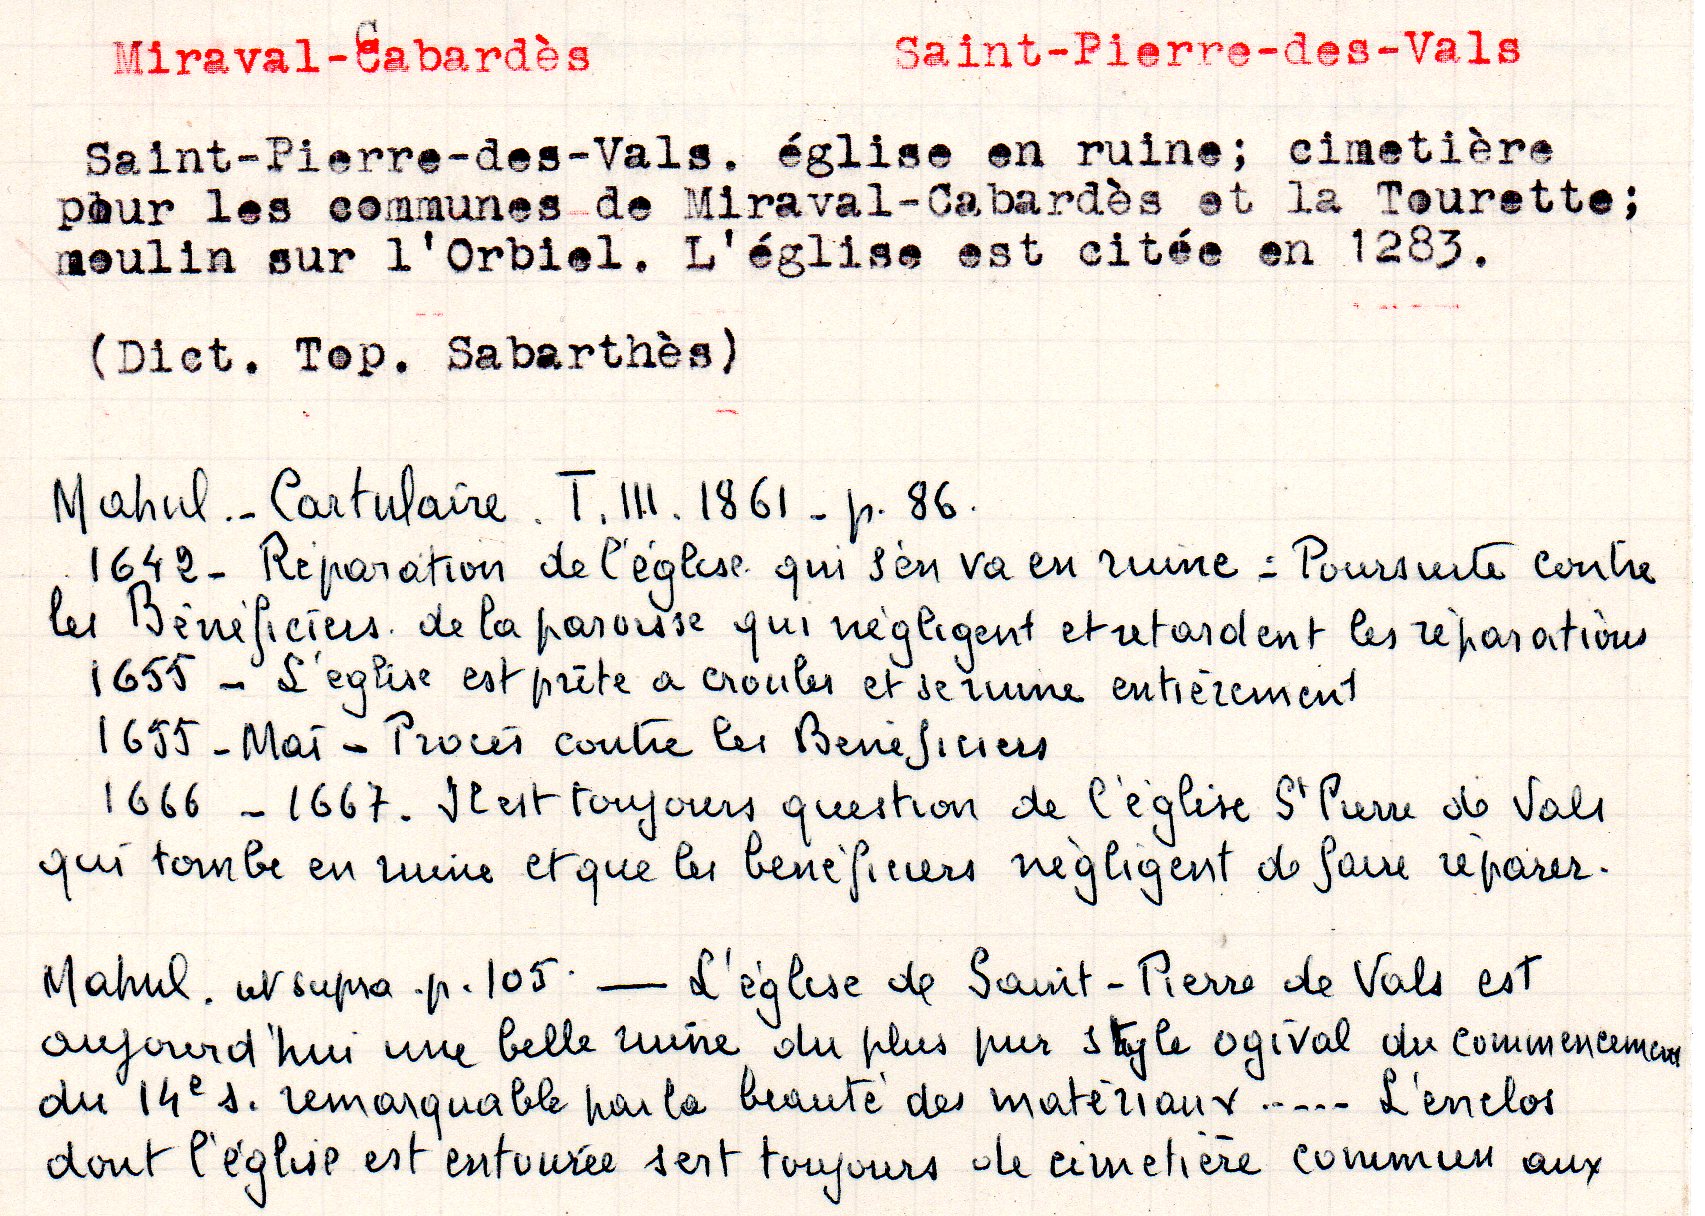 Miraval-Cabardès Saint-Pierre-des-Vals
Saint-Pierre-des-Vals. église en ruine; cimetière
pour les communes de Miraval-Cabardès et la Tourette;
moulin sur l'Orbiel. L'église est citée en 1283.
(Dict. Top. Sabarthès)
Mahul.- Cartulaire. T.III. 1861 - p. 86.
1642 - Réparation de l'église qui s'en va en ruine : Poursuite contre
les Bénéficiers de la paroisse qui négligent et retardent les réparations
1655 - L'église est prête a crouler et se ruine entièrement
1655 - Mai - Procès contre les Bénéficiers
1666 - 1667. Il est toujours question de l'église St Pierre de Vals
qui tombe en ruine et que les bénéficiers négligent de faire réparer.
Mahul. ut supra. p. 105. — L'église de Saint-Pierre de Vals est
aujourd'hui une belle ruine du plus pur style ogival du commencement
du 14e s. remarquable par la beauté des matériaux ..... L'enclos
dont l'église est entourée sert toujours de cimetière commun aux